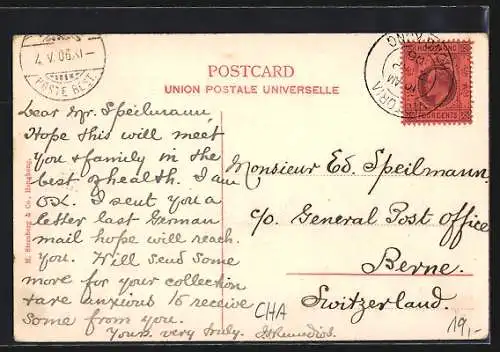 4. V. 06. XI-
POSTE REST.
POSTCARD
UNION POSTALE UNIVERSELLE
HONG KONG
FOUR CENTS
VICTORIA
10 AM
Dear Mr. Speilmann,
Hope this will meet
you & family in the
best of health. I am
O.K. I sent you a
letter last German
mail hope will reach
you. Will send some
more for your collection
& are anxious to receive
some from you.
Yours very truly.
Monsieur Ed. Speilmann.
c/o General Post Office
Berne.
Switzerland.
M. Sternberg & Co., Hongkong.
CHA
19,-